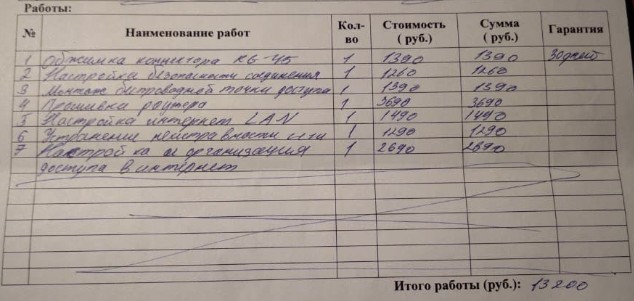 Работы:
№ Наименование работ Кол-во Стоимость ( руб.) Сумма ( руб.) Гарантия
1 Обжимка коннектора RG-45 1 1390 1390 30 дней
2 Настройка безопасности соединения 1 1260 1260
3 Монтаж беспроводной точки доступа 1 1390 1390
4 Прошивка роутера 1 3690 3690
5 Настройка интернет LAN 1 1490 1490
6 Устранение неисправности 1 1290 1290
7 Настройка и организация 1 2690 2690
доступа в интернет
Итого работы (руб.): 13200